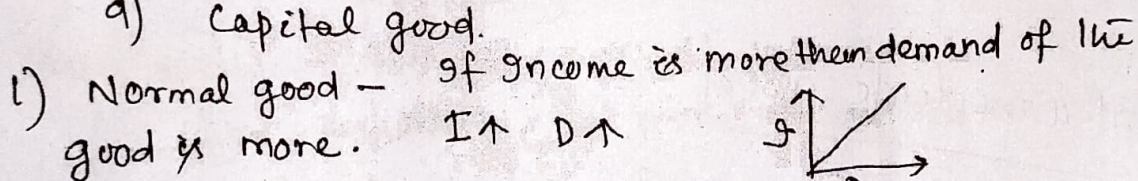 9) Capital good.
1) Normal good - If Income is more then demand of the
good is more. I↑ D↑
I